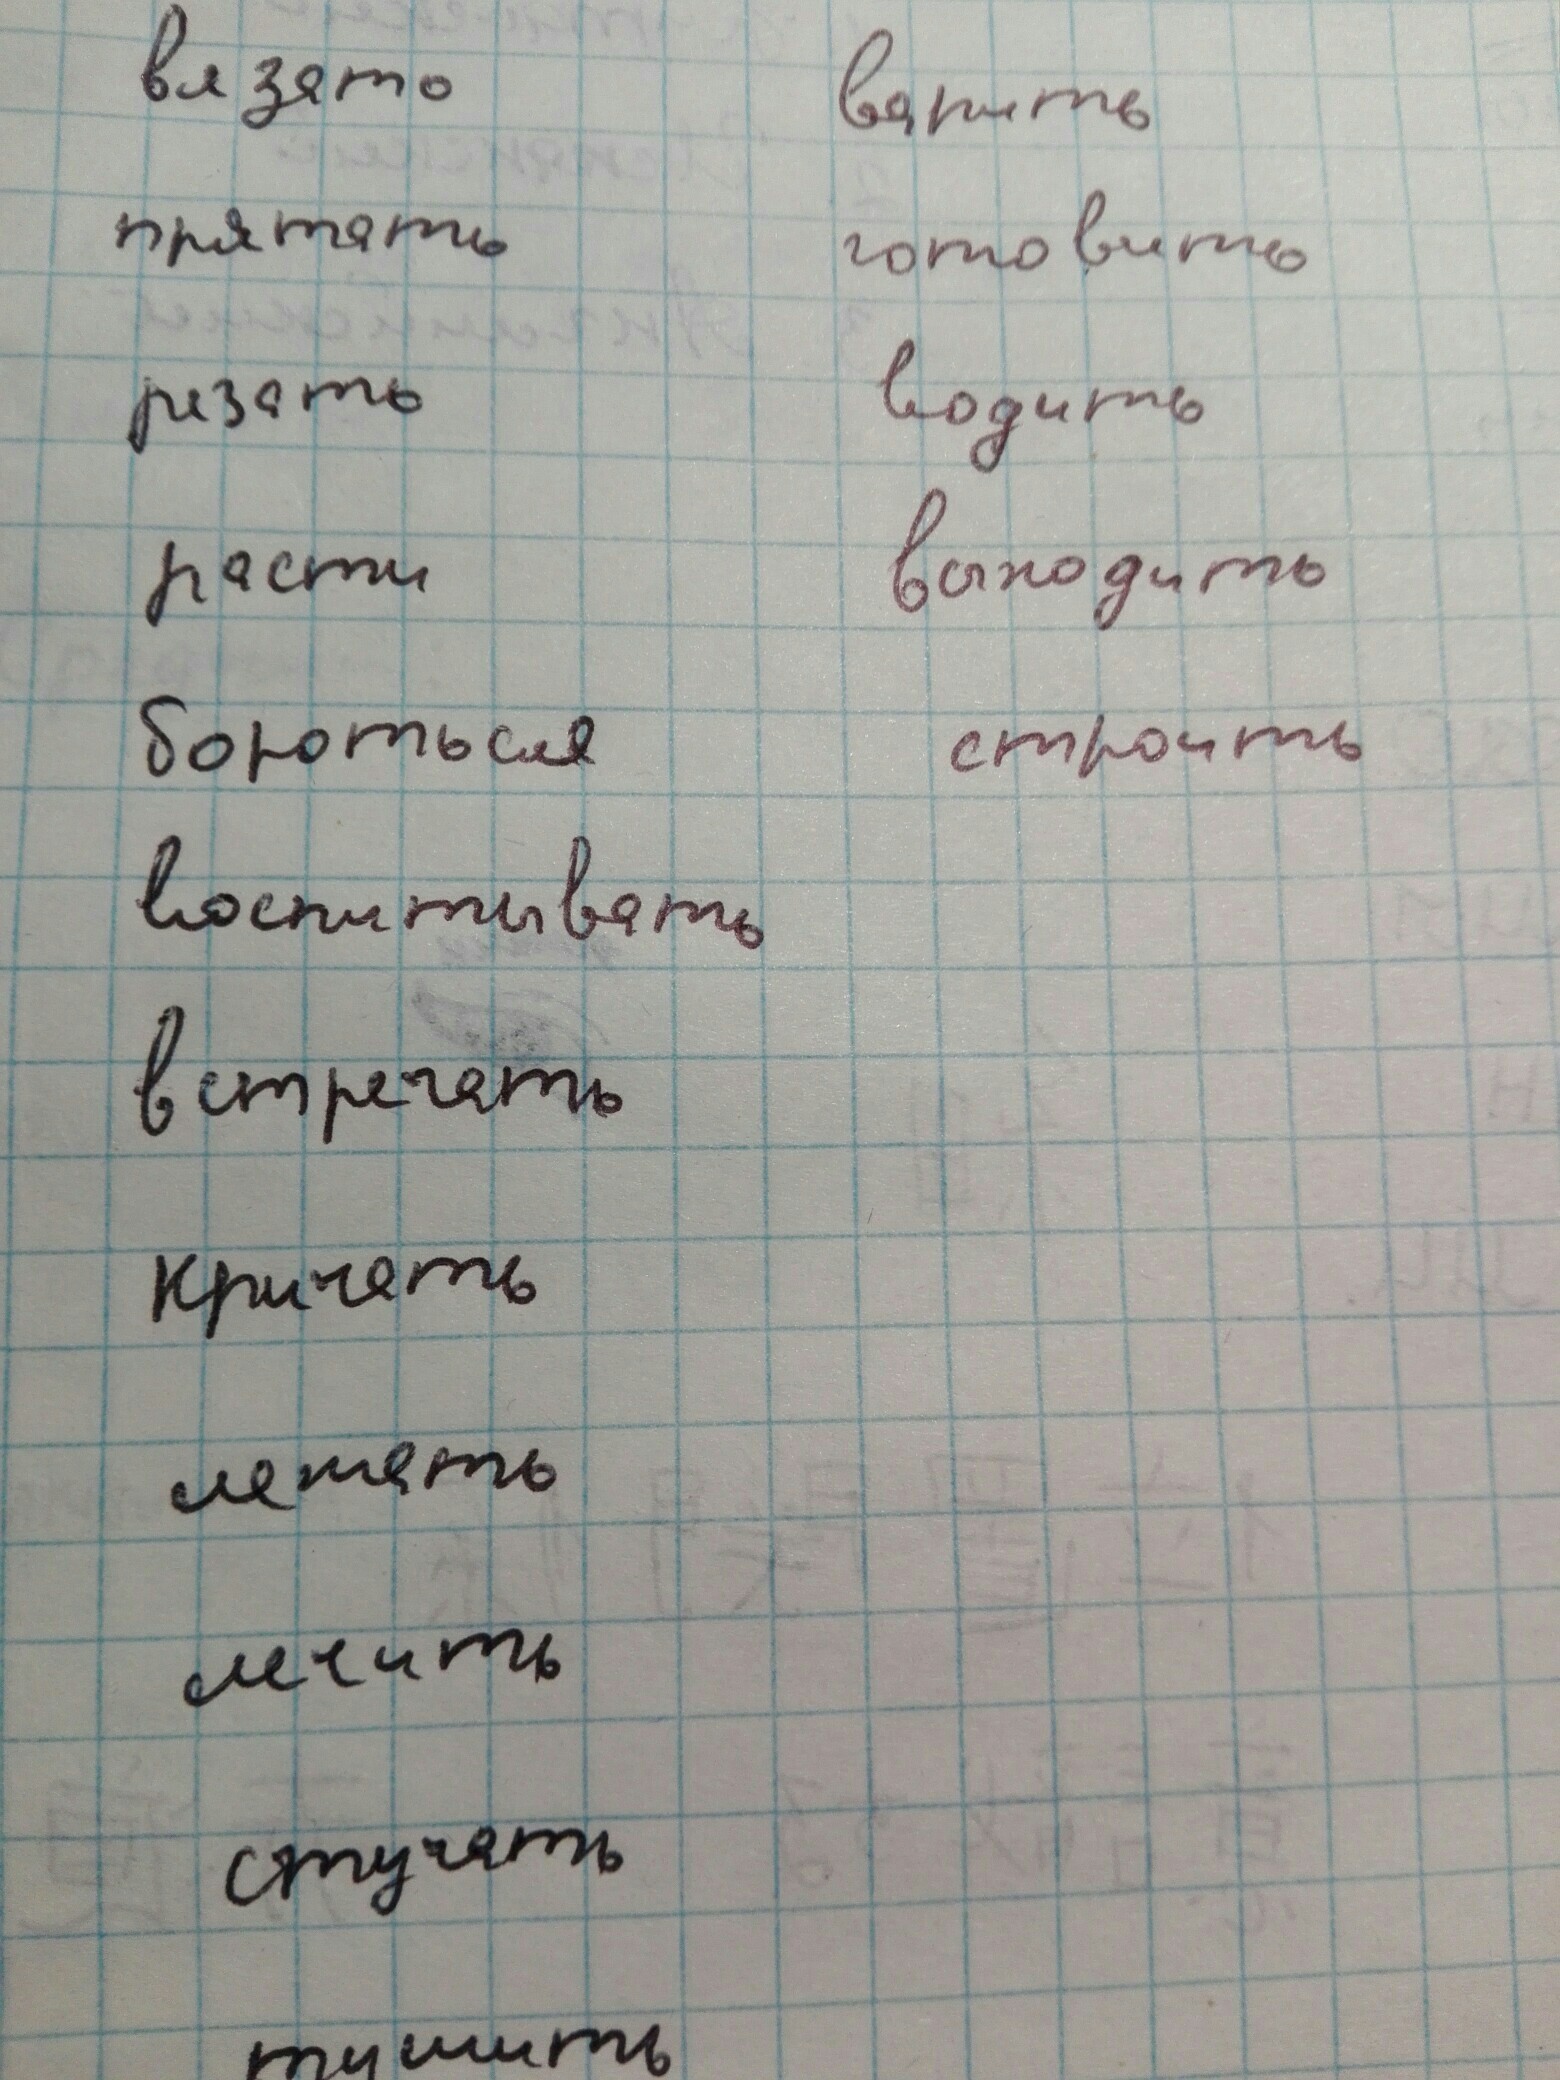 вязать варить
прятать готовить
резать водить
расти выходить
бороться строить
воспитывать
встречать
кричать
лежать
лечить
стучать
тушить